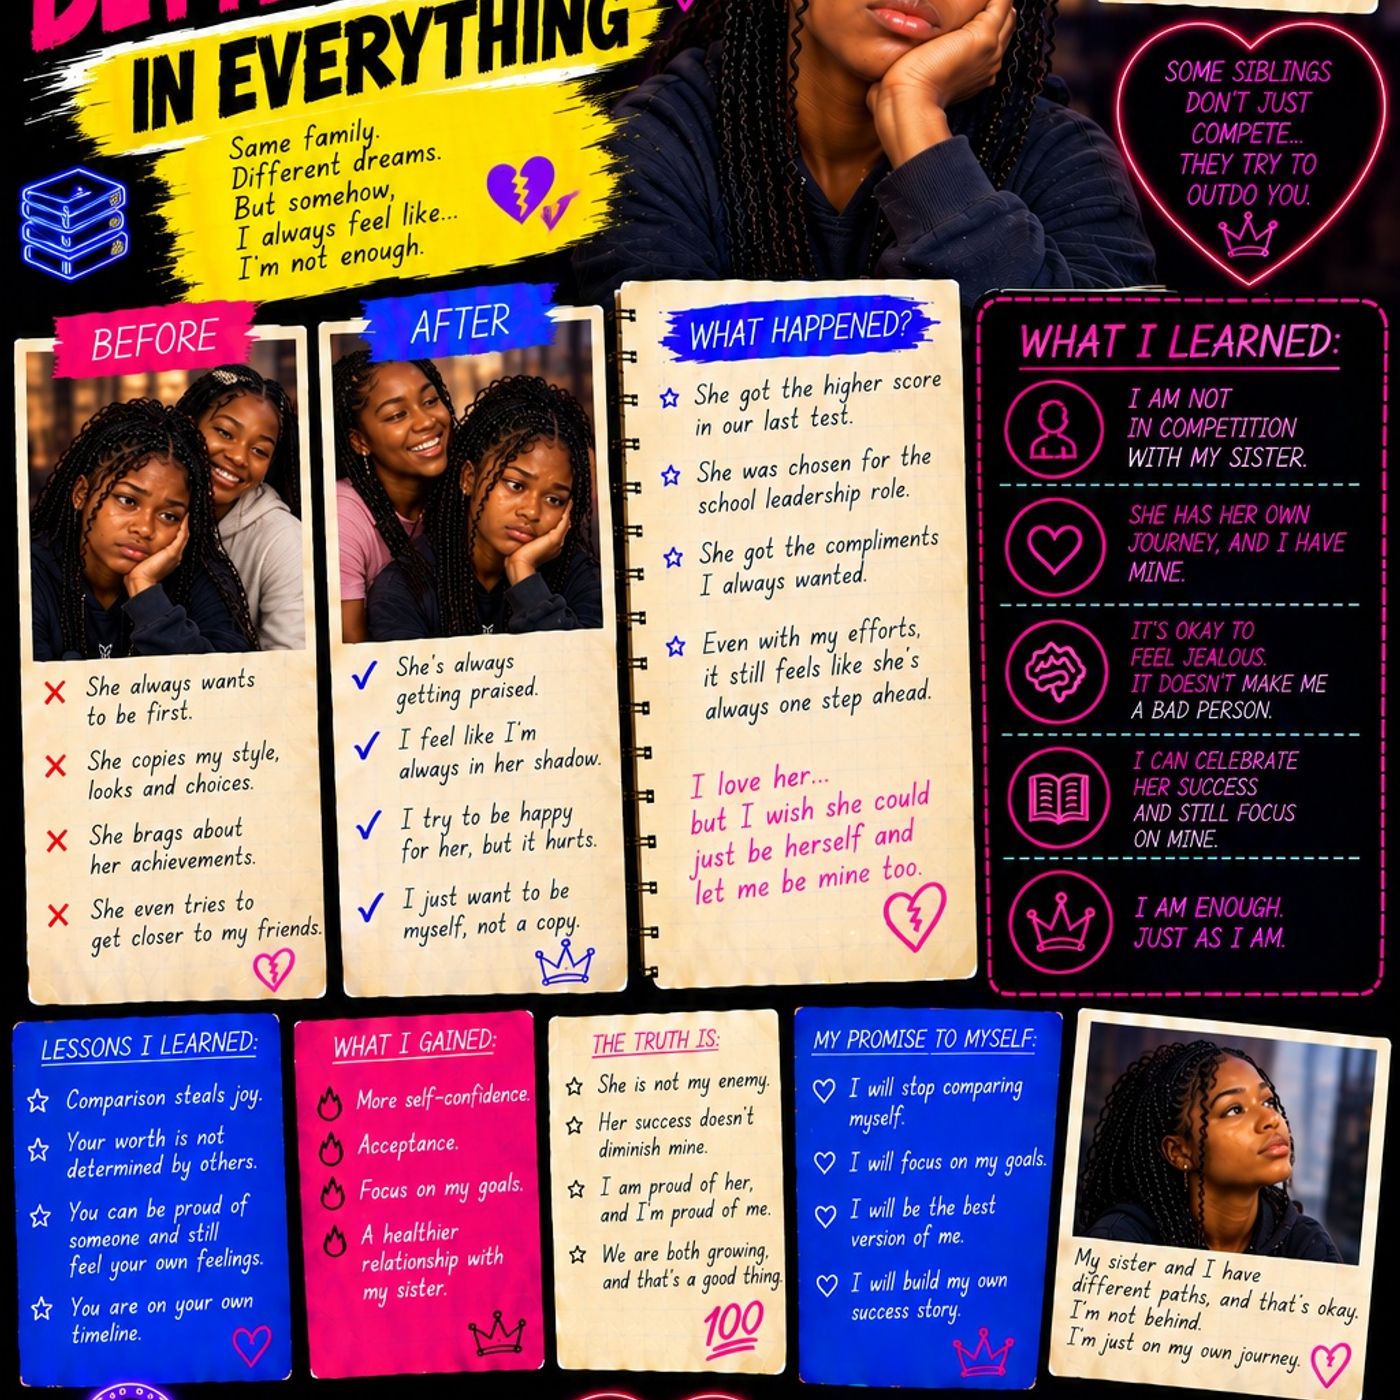 IN EVERYTHING
Same family.
Different dreams.
But somehow,
I always feel like...
I'm not enough.
SOME SIBLINGS
DON'T JUST
COMPETE...
THEY TRY TO
OUTDO YOU.
BEFORE
She always wants
to be first.
She copies my style,
looks and choices.
She brags about
her achievements.
She even tries to
get closer to my friends.
AFTER
She's always
getting praised.
I feel like I'm
always in her shadow.
I try to be happy
for her, but it hurts.
I just want to be
myself, not a copy.
WHAT HAPPENED?
She got the higher score
in our last test.
She was chosen for the
school leadership role.
She got the compliments
I always wanted.
Even with my efforts,
it still feels like she's
always one step ahead.
I love her...
but I wish she could
just be herself and
let me be mine too.
WHAT I LEARNED:
I AM NOT
IN COMPETITION
WITH MY SISTER.
SHE HAS HER OWN
JOURNEY, AND I HAVE
MINE.
IT'S OKAY TO
FEEL JEALOUS.
IT DOESN'T MAKE ME
A BAD PERSON.
I CAN CELEBRATE
HER SUCCESS
AND STILL FOCUS
ON MINE.
I AM ENOUGH.
JUST AS I AM.
LESSONS I LEARNED:
Comparison steals joy.
Your worth is not
determined by others.
You can be proud of
someone and still
feel your own feelings.
You are on your own
timeline.
WHAT I GAINED:
More self-confidence.
Acceptance.
Focus on my goals.
A healthier
relationship with
my sister.
THE TRUTH IS:
She is not my enemy.
Her success doesn't
diminish mine.
I am proud of her,
and I'm proud of me.
We are both growing,
and that's a good thing.
100
MY PROMISE TO MYSELF:
I will stop comparing
myself.
I will focus on my goals.
I will be the best
version of me.
I will build my own
success story.
My sister and I have
different paths, and that's okay.
I'm not behind.
I'm just on my own journey.